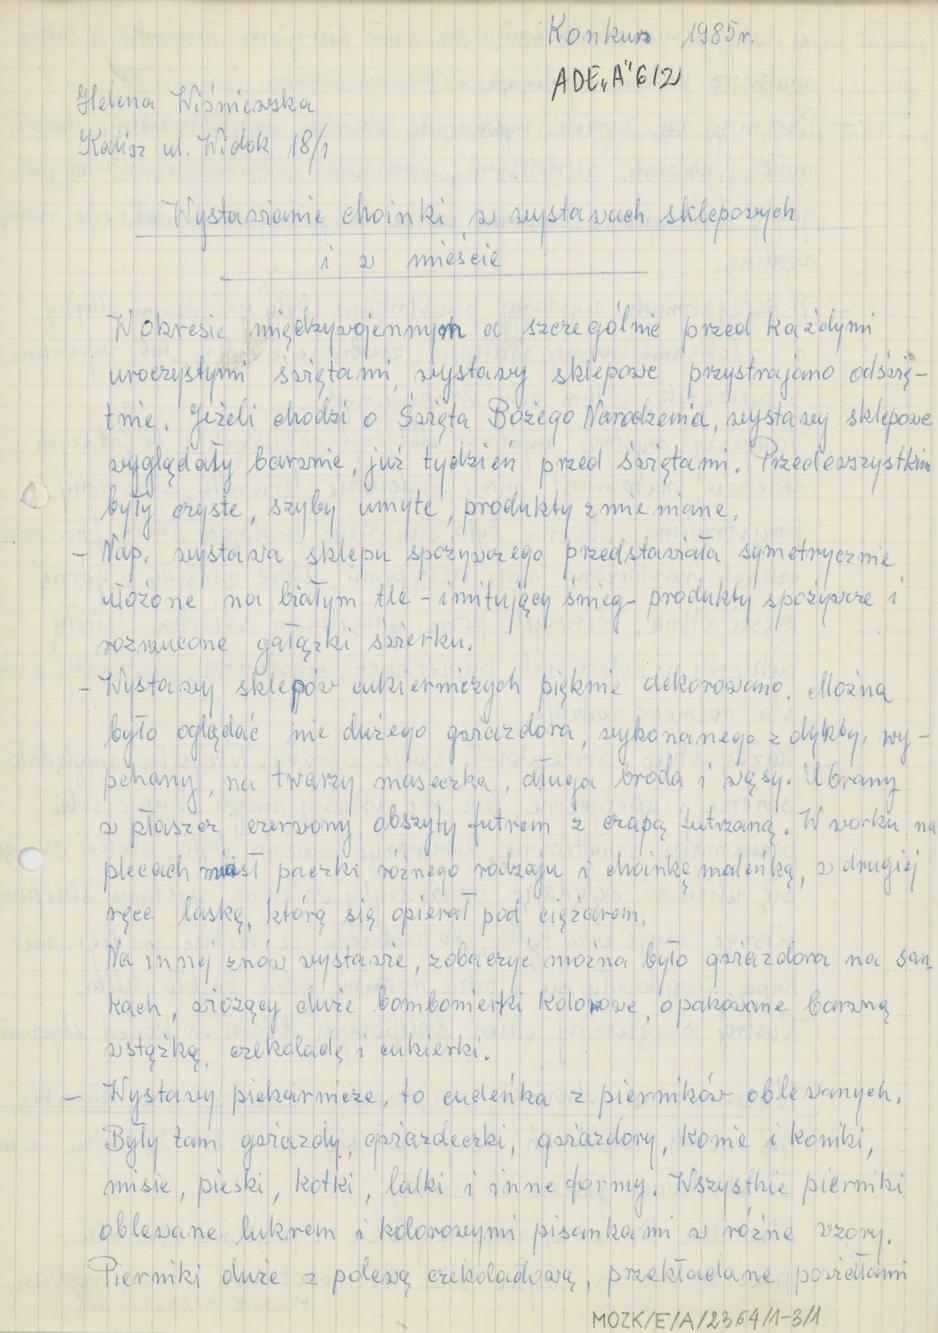 Konkurs 1985r.
ADE„A"6/2
Helena Wiśniewska
Kalisz ul. Widok 18/1
Wystawianie choinki w wystawach sklepowych
i w mieście
W okresie międzywojennym a szczególnie przed każdymi
uroczystymi świętami, wystawy sklepowe przystrajano odświę-
tnie. Jeżeli chodzi o Święta Bożego Narodzenia, wystawy sklepowe
wyglądały barwnie, już tydzień przed świętami. Przedewszystkim
były czyste, szyby umyte, produkty zmieniane.
– Nap. wystawa sklepu spożywczego przedstawiała symetrycznie
ułożone na białym tle – imitujący śnieg – produkty spożywcze i
rozrzucone gałązki świerku.
– Wystawy sklepów cukierniczych pięknie dekorowano. Można
było oglądać nie dużego gwiazdora, wykonanego z dykty, wy-
pchany, na twarzy maseczka, długa broda i wąsy. Ubrany
w płaszcz czerwony obszyty futrem z czapą futrzaną. W worku na
plecach niósł paczki różnego rodzaju i choinkę maleńką, w drugiej
ręce laskę, którą się opierał pod ciężarem.
Na innej znów wystawie, zobaczyć można było gwiazdora na san-
kach, wiozący duże bombonierki kolorowe, opakowane barwną
wstążką, czekoladę i cukierki.
– Wystawy piekarnicze, to cudeńka z pierników oblewanych.
Były tam gwiazdy, gwiazdeczki, gwiazdory, konie i koniki,
misie, pieski, kotki, lalki i inne formy. Wszystkie pierniki
oblewane lukrem i kolorowymi pisankami w różne wzory.
Pierniki duże z polewą czekoladową, przekładane powidłami
MOZK/E/A/2364/1-3/1